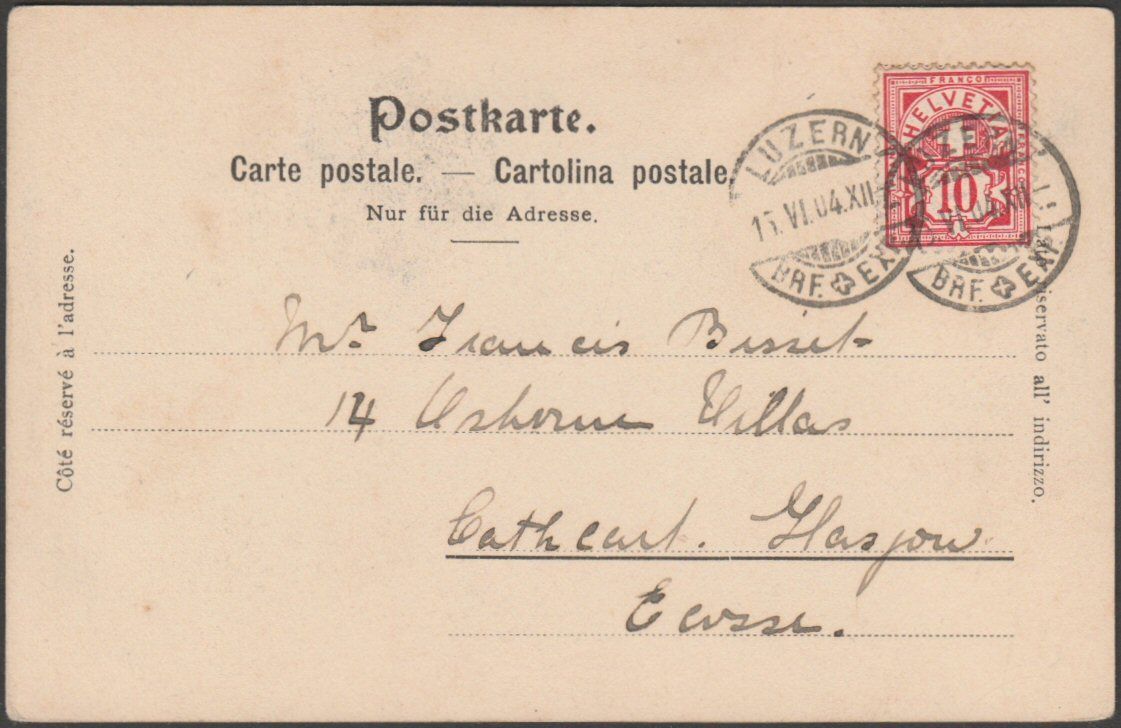 Postkarte.
Carte postale. — Cartolina postale.
Nur für die Adresse.
FRANCO
HELVETIA
10
LUZERN
15.VI.04.XII
BRF. EXP.
LUZERN
VI.04.XII
BRF. EXP.
Côté réservé à l'adresse.
Lato riservato all' indirizzo.
Mr Francis Bisset
14 Osborne Villas
Cathcart. Glasgow
Ecosse.